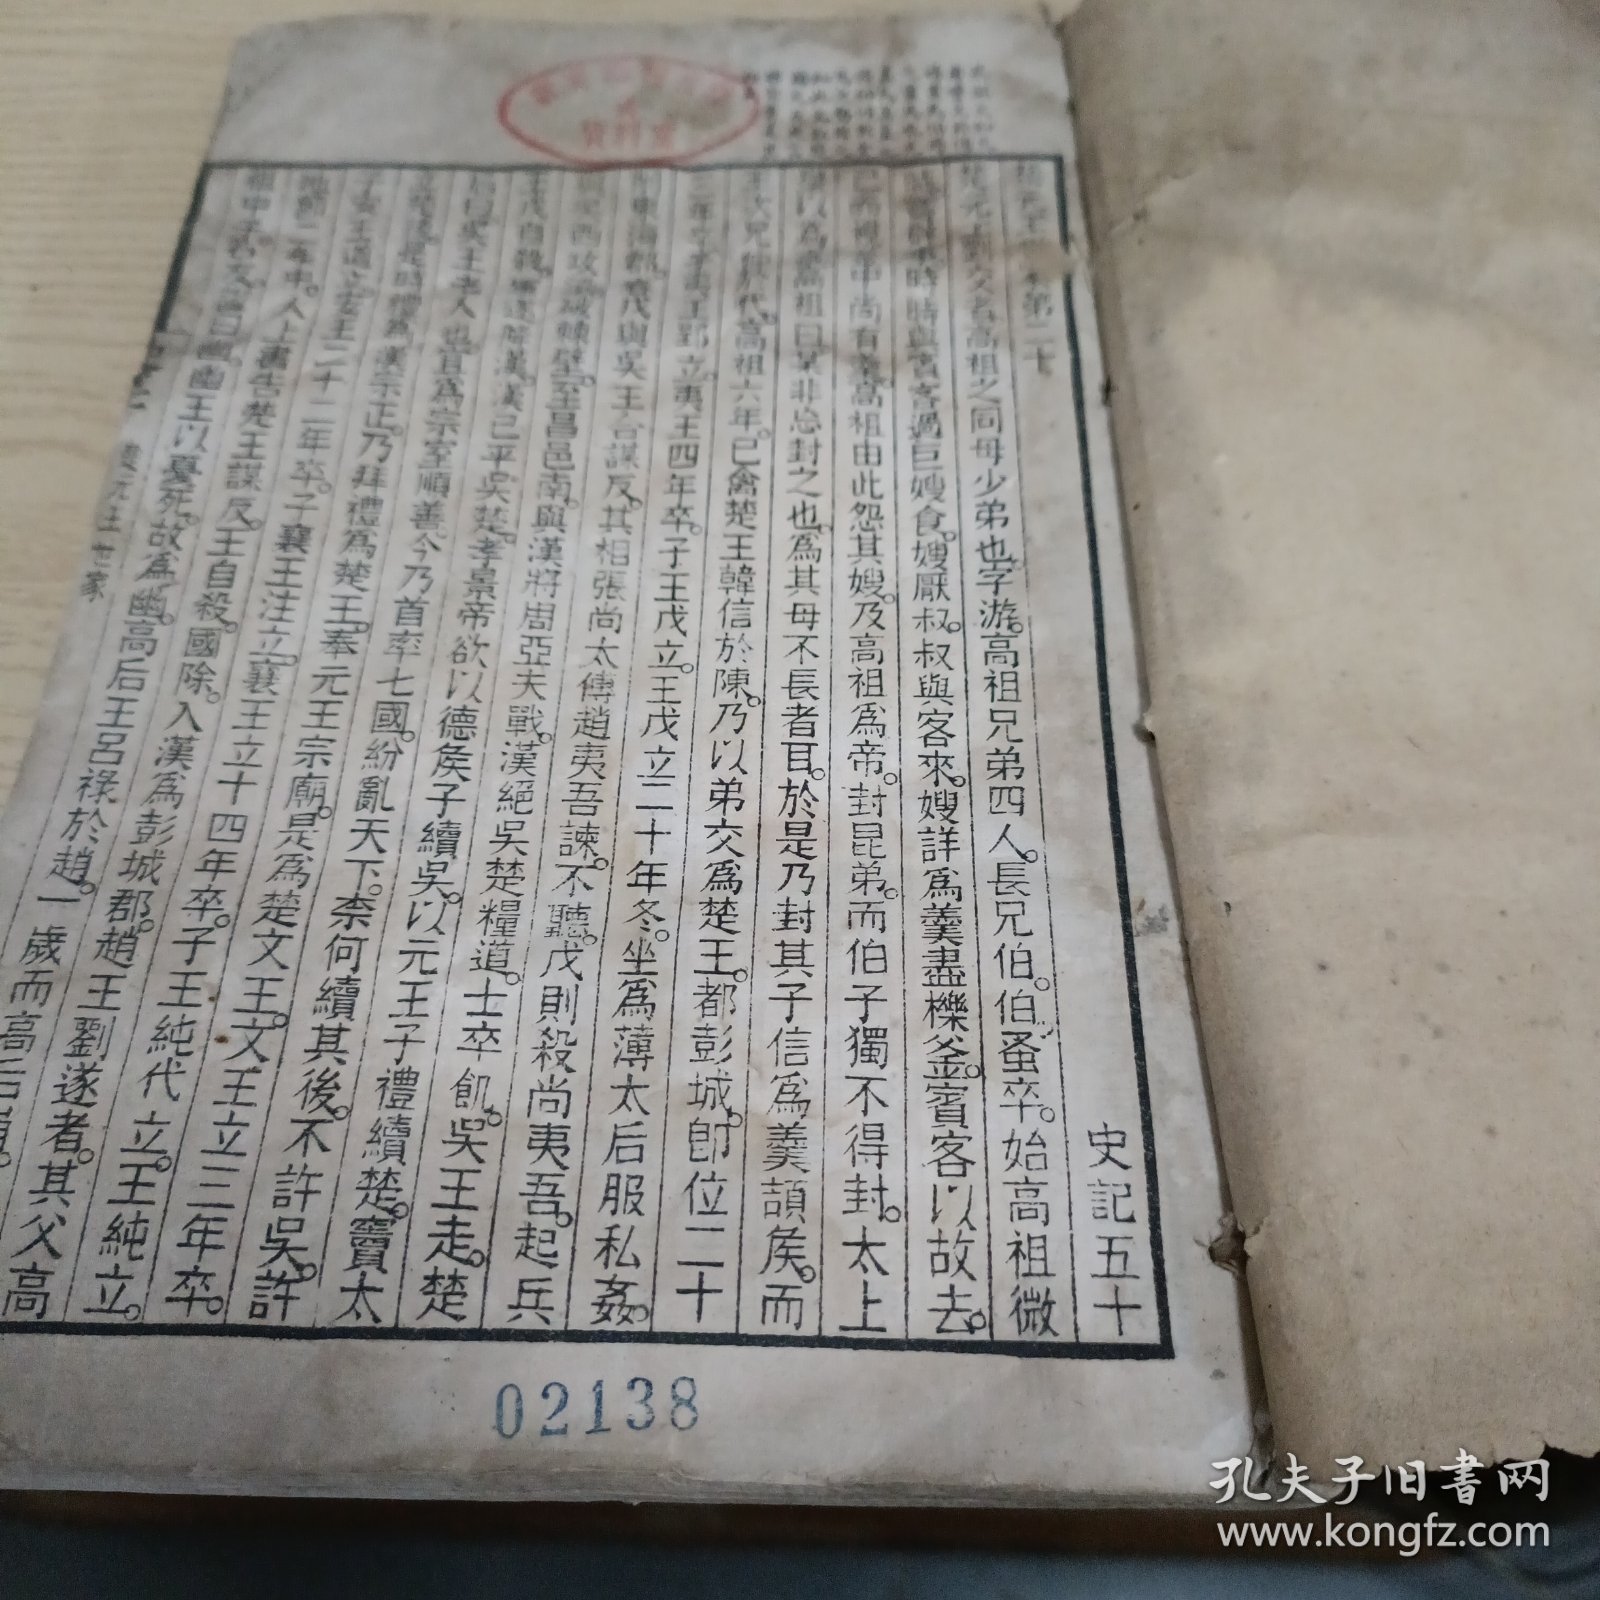 楚元王世家第二十 史記五十
楚元王劉交者高祖之同母少弟也。字游。高祖兄弟四人。長兄伯。伯蚤卒。始高祖微
時。嘗辟事。時時與賓客過巨嫂食。嫂厭叔。叔與客來。嫂詳爲羹盡櫟釜。賓客以故去。
已而視釜中尚有羹。高祖由此怨其嫂。及高祖爲帝。封昆弟。而伯子獨不得封。太上
皇以爲言。高祖曰某非忘封之也。爲其母不長者耳。於是乃封其子信爲羹頡侯。而
王次兄仲於代。高祖六年。已禽楚王韓信於陳。乃以弟交爲楚王。都彭城。卽位二十
三年卒。子夷王郢立。夷王四年卒。子王戊立。王戊立二十年。冬。坐爲薄太后服私姦。
削東海郡。春戊與吳王合謀反。其相張尚太傅趙夷吾諫。不聽。戊則殺尚夷吾。起兵
與吳西攻梁。破棘壁。至昌邑南。與漢將周亞夫戰。漢絕吳楚糧道。士卒飢。吳王走。楚
王戊自殺。軍遂降漢。漢已平吳楚。孝景帝欲以德侯子續吳。以元王子禮續楚。竇太
后曰。吳王老人也。宜爲宗室順善。今乃首率七國。紛亂天下。柰何續其後。不許吳。許
立楚後。是時禮爲漢宗正。乃拜禮爲楚王。奉元王宗廟。是爲楚文王。文王立三年卒。
子安王道立。安王二十二年卒。子襄王注立。襄王立十四年卒。子王純代立。王純立。
地節二年中。人上書告楚王謀反。王自殺。國除。入漢爲彭城郡。趙王劉遂者。其父高
祖中子。名友。諡曰幽。幽王以憂死。故爲幽。高后王呂祿於趙。一歲而高后崩。
楚元王世家
02138
孔夫子旧书网
www.kongfz.com